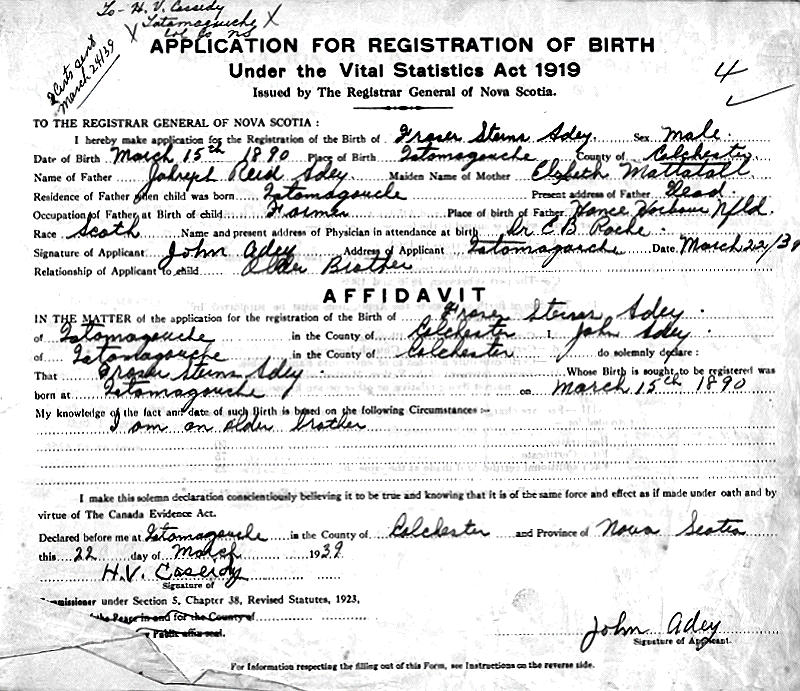 To - H. V. Cassidy
X Tatamagouche X
Col Co NS
2 Certs sent
March 24/39
APPLICATION FOR REGISTRATION OF BIRTH
Under the Vital Statistics Act 1919
4
Issued by The Registrar General of Nova Scotia.
TO THE REGISTRAR GENERAL OF NOVA SCOTIA :
I hereby make application for the Registration of the Birth of Fraser Sterns Adey. Sex Male.
Date of Birth March 15th 1890 Place of Birth Tatamagouche County of Colchester
Name of Father Johseph Reid Adey Maiden Name of Mother Elizbeth Mattatall
Residence of Father when child was born Tatamagouche Present address of Father Dead.
Occupation of Father at Birth of child Farmer Place of birth of Father Hance Harbour Nfld.
Race Scoth Name and present address of Physician in attendance at birth Dr C B Roche.
Signature of Applicant John Adey Address of Applicant Tatamagouche Date March 22/39
Relationship of Applicant to child Older Brother
AFFIDAVIT
IN THE MATTER of the application for the registration of the Birth of Fraser Sterns Adey.
of Tatamagouche in the County of Colchester I, John Adey
of Tatamagouche in the County of Colchester do solemnly declare :
That Fraser Sterns Adey Whose Birth is sought to be registered was
born at Tatamagouche on March 15th 1890
My knowledge of the fact and date of such Birth is based on the following Circumstances :-
I am an older brother
I make this solemn declaration conscientiously believing it to be true and knowing that it is of the same force and effect as if made under oath and by
virtue of The Canada Evidence Act.
Declared before me at Tatamagouche in the County of Colchester and Province of Nova Scotia
this 22 day of March 1939
H.V. Cassidy
Signature of
mmissioner under Section 5, Chapter 38, Revised Statutes, 1923,
the Peace in and for the County of
Public affix seal.
John Adey
Signature of Applicant.
For Information respecting the filling out of this Form, see Instructions on the reverse side.